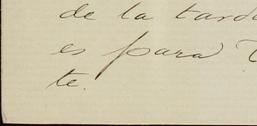 de la tard
es para
te.